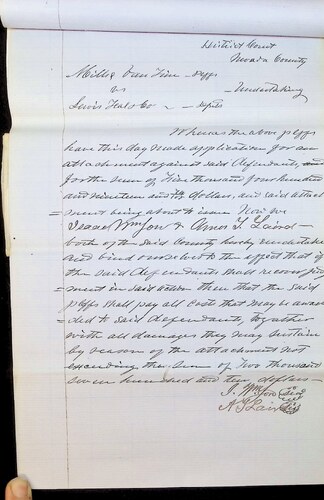 District Court
Nevada County
Mills & Van Tine - Plffs
vs - Undertaking
Lewis Teal & Co - Defdts
Whereas the above plffs
have this day made application for an
attachment against said defendants, and
for the sum of Five thousand four hundred
and nineteen dollars, and said attach
=ment being about to issue Now we
Isaac & Amos T. Laird
both of the said County hereby undertake
and bind ourselves to the effect that if
the said defendants shall recover judg
=ment in said action then that the said
plffs shall pay all cost that may be awar
=ded to said defendants, together
with all damages they may sustain
by reason of the attachment not
exceeding the sum of two thousand
seven hundred and ten dollars -
A T Laird